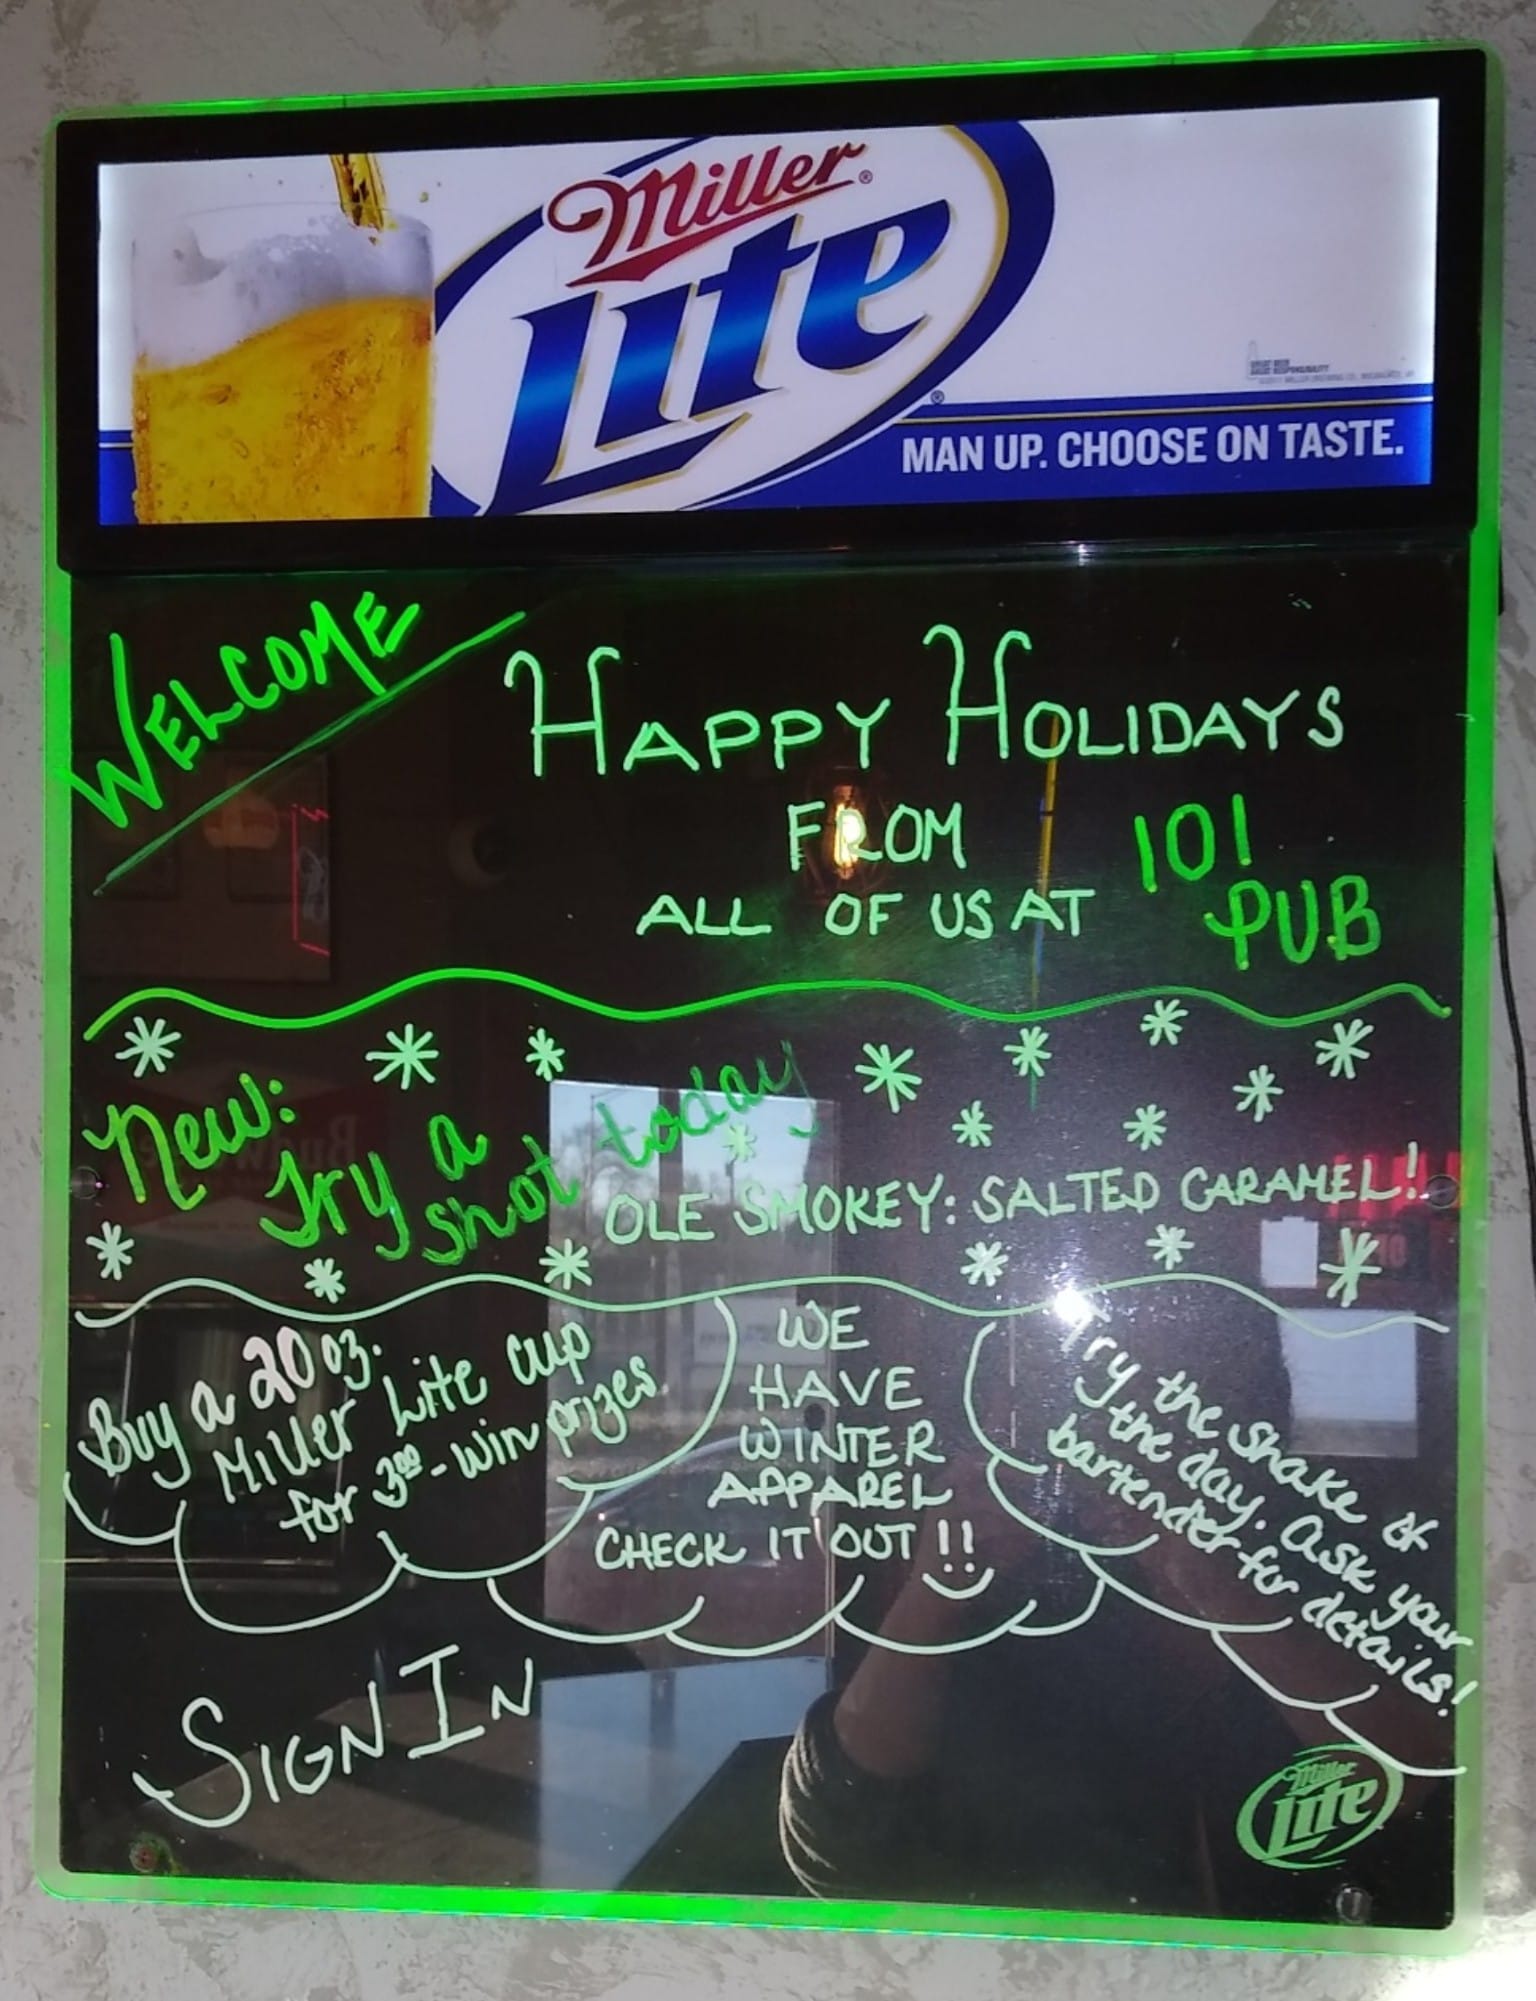 Miller
Lite
GREAT BEER
GREAT RESPONSIBILITY
MAN UP. CHOOSE ON TASTE.
WELCOME
HAPPY HOLIDAYS
FROM
ALL OF US AT
101
PUB
New:
Try a
shot today
OLE SMOKEY: SALTED CARAMEL!
Buy a 20 oz.
Miller Lite cup
for 3.00 - win prizes
WE
HAVE
WINTER
APPAREL
CHECK IT OUT!!
Try the shake of
the day. Ask your
bartender for details!
SIGN IN
Miller
Lite